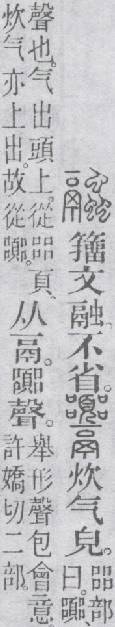 籒文融、不省。炊气皃。㗊部曰。嚻、
聲也。气出頭上。從㗊頁、炊气亦上出。故從嚻。从鬲。嚻聲。舉形聲包會意。許嬌切二部。